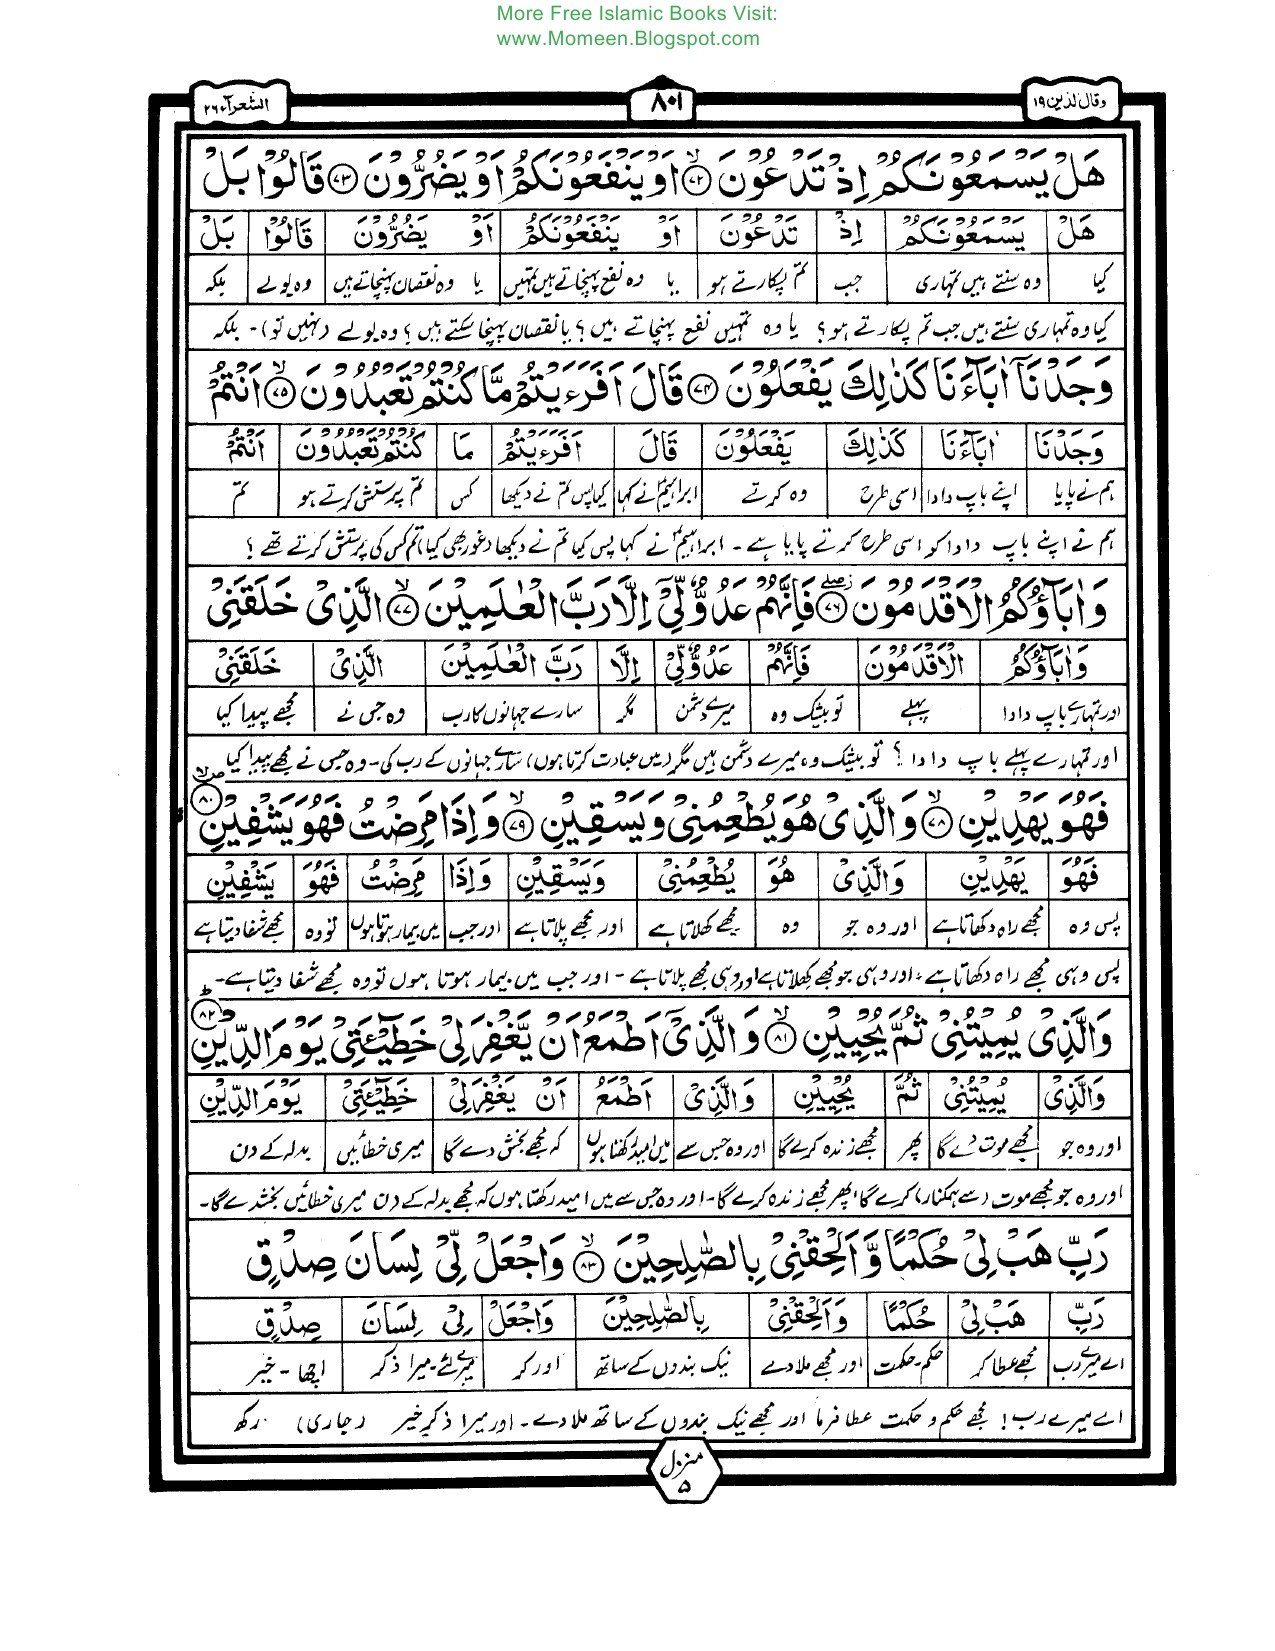 More Free Islamic Books Visit:
www.Momeen.Blogspot.com
وقال الذین ۱۹ ۸۰۱ الشعرآء ۲۶
هَلْ يَسْمَعُوْنَكُمْ اِذْ تَدْعُوْنَ ۷۲ اَوْ يَنْفَعُوْنَكُمْ اَوْ يَضُرُّوْنَ ۷۳ قَالُوْا بَلْ
هَلْ يَسْمَعُوْنَكُمْ اِذْ تَدْعُوْنَ اَوْ يَنْفَعُوْنَكُمْ اَوْ يَضُرُّوْنَ قَالُوْا بَلْ
کیا وہ سنتے ہیں تمہاری جب تم پکارتے ہو یا وہ نفع پہنچاتے ہیں تمہیں یا وہ نقصان پہنچاتے ہیں وہ بولے بلکہ
کیا وہ تمہاری سنتے ہیں جب تم پکارتے ہو؟ یا وہ تمہیں نفع پہنچاتے ہیں؟ یا نقصان پہنچا سکتے ہیں؟ وہ بولے (نہیں تو)۔ بلکہ
وَجَدْنَآ اٰبَآءَنَا كَذٰلِكَ يَفْعَلُوْنَ ۷۴ قَالَ اَفَرَءَيْتُمْ مَّا كُنْتُمْ تَعْبُدُوْنَ ۷۵ اَنْتُمْ
وَجَدْنَا اٰبَآءَنَا كَذٰلِكَ يَفْعَلُوْنَ قَالَ اَفَرَءَيْتُمْ مَا كُنْتُمْ تَعْبُدُوْنَ اَنْتُمْ
ہم نے پایا اپنے باپ دادا اسی طرح وہ کرتے ابراہیمؑ نے کہا کیا پس تم نے دیکھا کس تم پرستش کرتے ہو تم
ہم نے اپنے باپ دادا کو اسی طرح کرتے پایا ہے۔ ابراہیمؑ نے کہا پس کیا تم نے دیکھا (غور بھی کیا) تم کس کی پرستش کرتے تھے؟
وَاٰبَآؤُكُمُ الْاَقْدَمُوْنَ ۷۶ فَاِنَّهُمْ عَدُوٌّ لِّيْٓ اِلَّا رَبَّ الْعٰلَمِيْنَ ۷۷ الَّذِيْ خَلَقَنِيْ
وَاٰبَآؤُكُمُ الْاَقْدَمُوْنَ فَاِنَّهُمْ عَدُوٌّ لِّيْ اِلَّا رَبَّ الْعٰلَمِيْنَ الَّذِيْ خَلَقَنِيْ
اور تمہارے باپ دادا پہلے تو بیشک وہ میرے دشمن مگر سارے جہانوں کا رب وہ جس نے مجھے پیدا کیا
اور تمہارے پہلے باپ دادا؟ تو بیشک وہ میرے دشمن ہیں مگر (میں عبادت کرتا ہوں) سارے جہانوں کے رب کی۔ وہ جس نے مجھے پیدا کیا
فَهُوَ يَهْدِيْنِ ۷۸ وَالَّذِيْ هُوَ يُطْعِمُنِيْ وَيَسْقِيْنِ ۷۹ وَاِذَا مَرِضْتُ فَهُوَ يَشْفِيْنِ ۸۰
فَهُوَ يَهْدِيْنِ وَالَّذِيْ هُوَ يُطْعِمُنِيْ وَيَسْقِيْنِ وَاِذَا مَرِضْتُ فَهُوَ يَشْفِيْنِ
پس وہ مجھے راہ دکھاتا ہے اور وہ جو وہ مجھے کھلاتا ہے اور مجھے پلاتا ہے اور جب میں بیمار ہوتا ہوں تو وہ مجھے شفا دیتا ہے
پس وہی مجھے راہ دکھاتا ہے، اور وہی جو مجھے کھلاتا ہے اور وہی مجھے پلاتا ہے۔ اور جب میں بیمار ہوتا ہوں تو وہ مجھے شفا دیتا ہے۔
وَالَّذِيْ يُمِيْتُنِيْ ثُمَّ يُحْيِيْنِ ۸۱ وَالَّذِيْٓ اَطْمَعُ اَنْ يَّغْفِرَ لِيْ خَطِيْٓـَٔتِيْ يَوْمَ الدِّيْنِ ۸۲
وَالَّذِيْ يُمِيْتُنِيْ ثُمَّ يُحْيِيْنِ وَالَّذِيْ اَطْمَعُ اَنْ يَغْفِرَ لِيْ خَطِيْٓـَٔتِيْ يَوْمَ الدِّيْنِ
اور وہ جو مجھے موت دے گا پھر مجھے زندہ کرے گا اور وہ جس سے میں امید رکھتا ہوں کہ مجھے بخش دے گا میری خطائیں بدلہ کے دن
اور وہ جو مجھے موت (سے ہمکنار) کرے گا، پھر مجھے زندہ کرے گا۔ اور وہ جس سے میں امید رکھتا ہوں کہ مجھے بدلہ کے دن میری خطائیں بخشدے گا۔
رَبِّ هَبْ لِيْ حُكْمًا وَّاَلْحِقْنِيْ بِالصّٰلِحِيْنَ ۸۳ وَاجْعَلْ لِّيْ لِسَانَ صِدْقٍ
رَبِّ هَبْ لِيْ حُكْمًا وَاَلْحِقْنِيْ بِالصّٰلِحِيْنَ وَاجْعَلْ لِيْ لِسَانَ صِدْقٍ
اے میرے رب مجھے عطا کر حکم۔حکمت اور مجھے ملا دے نیک بندوں کے ساتھ اور کر میرے لئے۔میرا ذکر اچھا۔خیر
اے میرے رب! مجھے حکم و حکمت عطا فرما اور مجھے نیک بندوں کے ساتھ ملا دے۔ اور میرا ذکر خیر (جاری) رکھ
منزل ۵